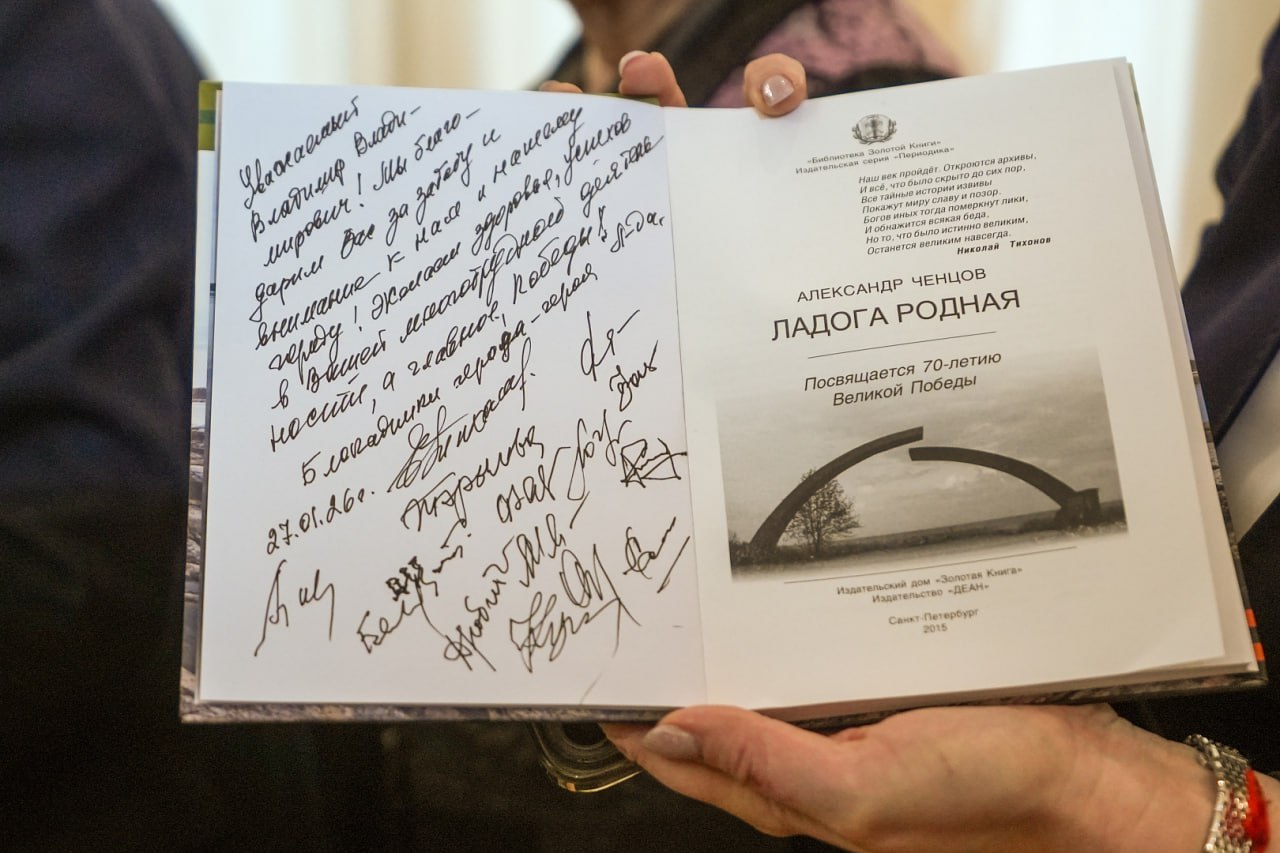 Уважаемый
Владимир Влади-
мирович! Мы благо-
дарим Вас за заботу и
внимание к нам и нашему
городу! Желаем здоровья, успехов
в Вашей многотрудной деятель-
ности, а главное, Победы!
Блокадники города-героя Л-да.
27.01.26г.
«Библиотека Золотой Книги»
Издательская серия «Периодика»
Наш век пройдёт. Откроются архивы,
И всё, что было скрыто до сих пор,
Все тайные истории извивы
Покажут миру славу и позор.
Богов иных тогда померкнут лики,
И обнажится всякая беда,
Но то, что было истинно великим,
Останется великим навсегда.
Николай Тихонов
АЛЕКСАНДР ЧЕНЦОВ
ЛАДОГА РОДНАЯ
Посвящается 70-летию
Великой Победы
Издательский дом «Золотая Книга»
Издательство «ДЕАН»
Санкт-Петербург
2015